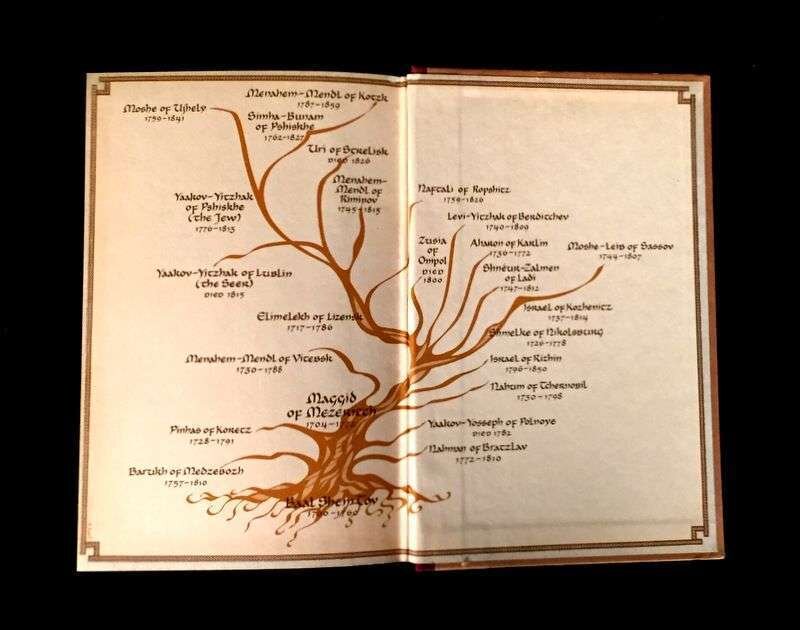 Menahem-Mendl of Kotzk
1787-1859
Moshe of Ujhely
1759-1841
Simha-Bunam
of Pshiskhe
1762-1827
Uri of Strelisk
DIED 1826
Menahem-
Mendl of
Riminov
1745-1815
Yaakov-Yitzhak
of Pshiskhe
(the Jew)
1776-1813
Yaakov-Yitzhak of Lublin
(the Seer)
DIED 1815
Elimelekh of Lizensk
1717-1786
Menahem-Mendl of Vitebsk
1730-1788
Maggid
of Mezeritch
Pinhas of Koretz
1728-1791
Barukh of Medzebozh
1757-1810
Baal Shem Tov
Naftali of Ropshitz
1759-1826
Levi-Yitzhak of Berditchev
1740-1809
Zusia
of
Onipol
DIED
1800
Aharon of Karlin
1736-1772
Moshe-Leib of Sassov
1744-1807
Shneur-Zalmen
of Ladi
1747-1812
Israel of Kozhenitz
1737-1814
Shmelke of Nikolsburg
1726-1778
Israel of Rizhin
1796-1850
Nahum of Tchernobil
1730-1798
Yaakov-Yosseph of Polnoye
DIED 1782
Nahman of Bratzlav
1772-1810